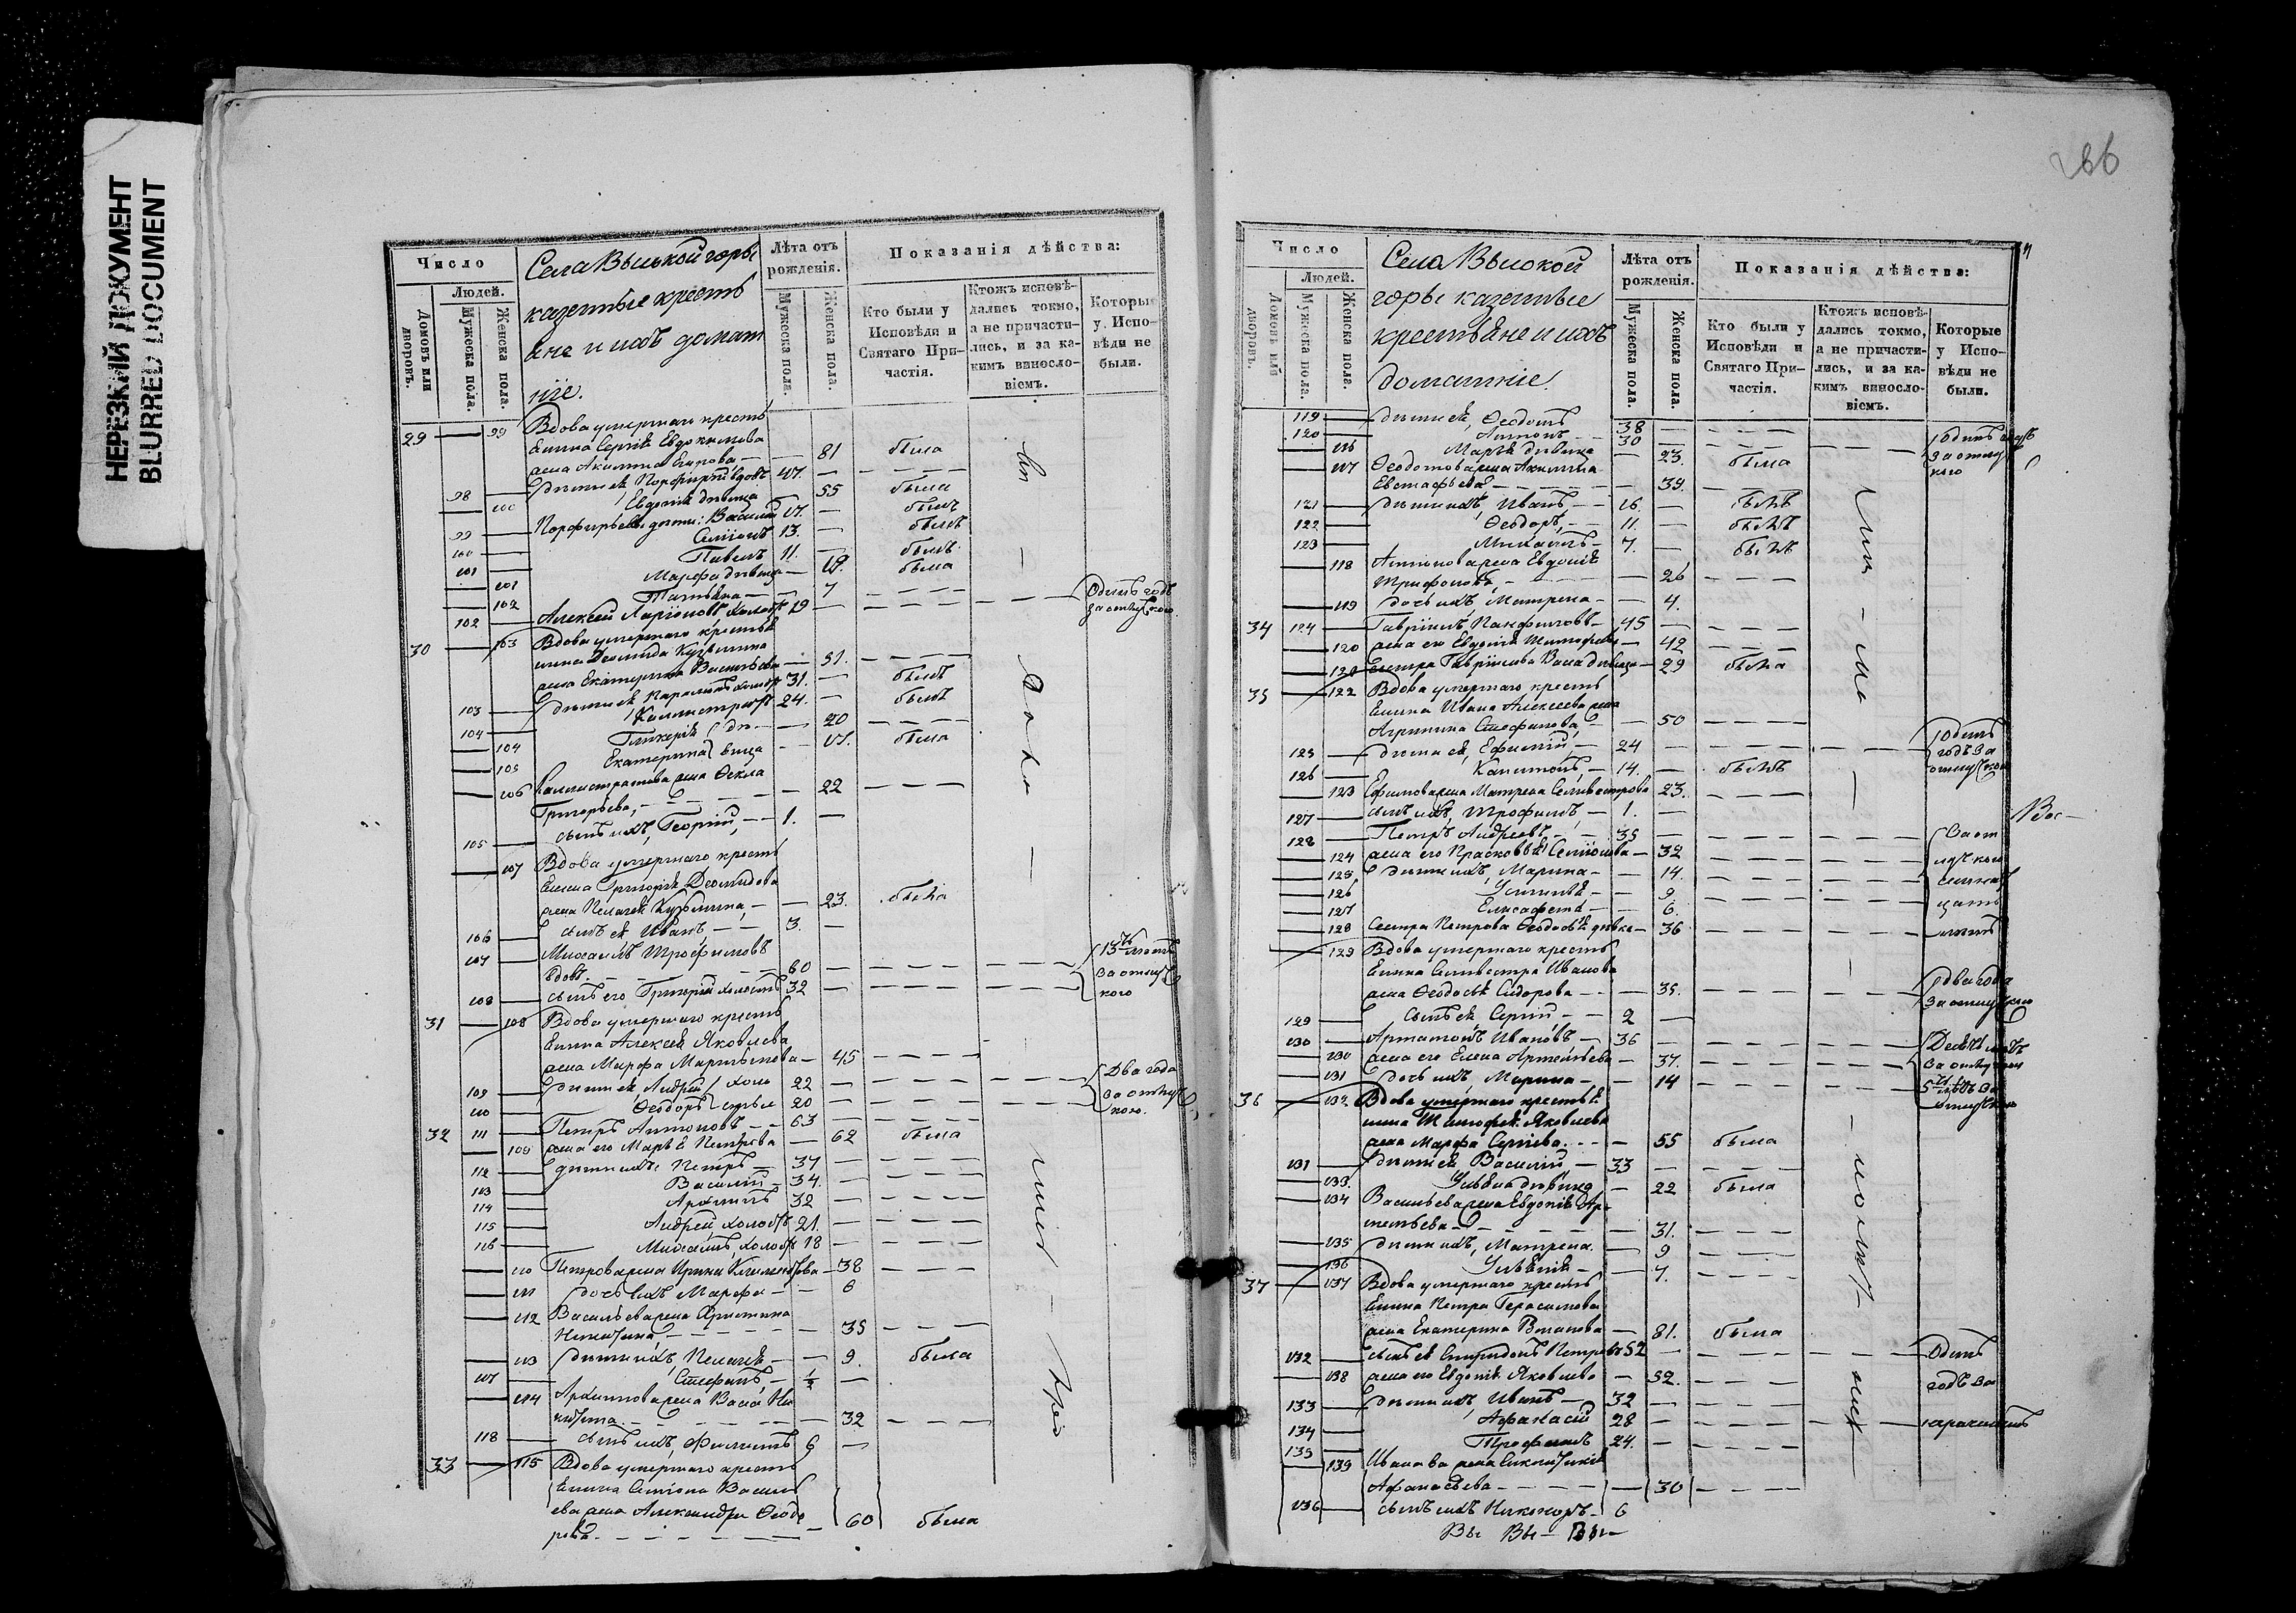 НЕРЕЗКИЙ ДОКУМЕНТ
BLURRED DOCUMENT
266
Число
Людей.
Домовъ или дворовъ.
Мужеска пола.
Женска пола.
Села Высокой горы
казенные кресть
яне и ихъ домаш
ніе.
Лѣта отъ рожденія.
Мужеска пола.
Женска пола.
Показанія дѣйства:
Кто были у Исповѣди и Святаго Причастія.
Ктожъ исповѣдались токмо, а не причастились, и за какимъ винословіемъ.
Которые у Исповѣди не были.
29 99 Вдова умершаго кресть
янина Сергія Евдокимова
жена Акилина Егорова 81 была
98 дѣти ея, Порфирій вдовъ 47.
100 Евдокія дѣвица 55 была
99 Порфирьевы дѣти: Василій 17. былъ
100 Симіонъ 13. былъ
101 Павелъ 11. былъ
101 Марфа дѣвица 19. была
102 Татьяна 7
102 Алексѣй Ларіоновъ холостъ 29 Одинъ годъ
за отлучкою
30 103 Вдова умершаго крестья
нина Деомида Кузьмина
жена Екатерина Васильева 51.
103 дѣти ея, холостъ 31. былъ
104 Каллистратъ 24. былъ
104 Гликерія дѣ 20
105 Екатерина вица 17. была
106 Каллистратова жена Ѳекла
Григорьева, 22
105 сынъ ихъ, Георгій, 1.
107 Вдова умершаго кресть
янина Григорія Деомидова
жена Пелагея Кузьмина, 23. была
106 сынъ ея Иванъ, 3.
107 Михаилъ Трофимовъ
вдовъ. 60 13 лѣтъ
за отлуч
108 сынъ его Григорій холостъ 32 кою
31 108 Вдова умершаго кресть
янина Алексѣя Яковлева
жена Марфа Мартынова 45
109 дѣти ея, Андрей холо 22 Два года
за отлуч
110 Ѳеодоръ стые 20 кою.
32 111 Петръ Антоновъ 63
109 жена его Марья Петрова 62 была
112 дѣти ихъ: Петръ 37
113 Василій 34.
114 Архипъ 32
115 Андрей холостъ 21.
116 Михаилъ, холостъ 18
110 Петрова жена Ирина Климентова 38
111 дочь ихъ Марфа 6
112 Васильева жена Христина
Никитина 35
113 дѣти ихъ, Пелагея 9. была
117 Стефанъ, 1/2
114 Архипова жена Васса Ни
китина 32
118 сынъ ихъ, Филиппъ 6
33 115 Вдова умершаго кресть
янина Симіона Василь
ева жена Александра Ѳеодо
рова 60 была
Число
Людей.
Домовъ или дворовъ.
Мужеска пола.
Женска пола.
Села Высокой
горы казенные
крестьяне и ихъ
домашніе.
Лѣта отъ рожденія.
Мужеска пола.
Женска пола.
Показанія дѣйства:
Кто были у Исповѣди и Святаго Причастія.
Ктожъ исповѣдались токмо, а не причастились, и за какимъ винословіемъ.
Которые у Исповѣди не были.
119 дѣти ея, Ѳеодотъ 38 Одинъ годъ
120 Антонъ 30 за отлуч
116 Марья дѣвица 23. была кою
117 Ѳеодотова жена Акилина
Евстафьева 39.
121 дѣти ихъ, Иванъ, 16. былъ
122 Ѳеодоръ, 11. былъ
123 Михаилъ 7. былъ
118 Антонова жена Евдокія
Трифонова, 26
119 дочь ихъ, Матрена 4.
34 124 Гавріилъ Панфиловъ 45
120 жена его Евдокія Тимофеева 42
120 сестра Гавріилова Васса дѣвица 29 была
35 122 Вдова умершаго кресть
янина Ивана Алексѣева жена
Агрипина Стефанова, 50
125 дѣти ея, Ефимій, 24 Одинъ
годъ за
126 Капитонъ, 14. былъ отлучкою
123 Ефимова жена Матрена Селивестрова 23.
127 сынъ ихъ, Трофимъ, 1.
Вос
128 Петръ Андреевъ, 35 За от
124 жена его Прасковья Симіонова 32 лучкою
125 дѣти ихъ, Марина 14.
126 9
127 Елисавета 6. цать
128 Сестра Петрова Ѳеодосья дѣвка 36 лѣтъ
129 Вдова умершаго кресть
янина Селивестра Иванова
жена Ѳеодосья Сидорова 35. два года
за отлучкою
129 сынъ ея Сергій 2
130 Артамонъ Ивановъ 36 Десять лѣтъ
130 жена его Елена Артемьева 37. за отлучкою
131 дочь ихъ, Марина 14 5 лѣтъ за
отлучкою
36 132 Вдова умершаго крестья
нина Тимофея Яковлева
жена Марфа Сергіева 55 была
131 дѣти ея Василій, 33
133. Ульяна дѣвица 22 была
134 Васильева жена Евдокія Ар
темьева 31.
135 дѣти ихъ, Матрена. 9
136 7.
37 137 Вдова умершаго кресть
янина Петра Герасимова
жена Екатерина 81. была
132 сынъ ея Спиридонъ Петровъ 52 Одинъ
138 жена его Евдокія Яковлева 52. годъ за
133 дѣти ихъ, Иванъ 32
134 Афанасій 28
135 Трофимъ 24.
139 Иванова жена
Афанасьева 30
136 сынъ ихъ Никаноръ 6
Вы Вы Вы